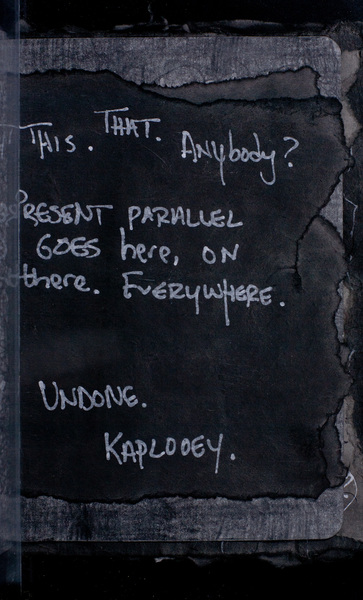 THIS. THAT. ANybody?
PRESENT PARALLEL
GOES here, ON
there. EVERYWHERE.
UNDONE.
KAPLOOEY.